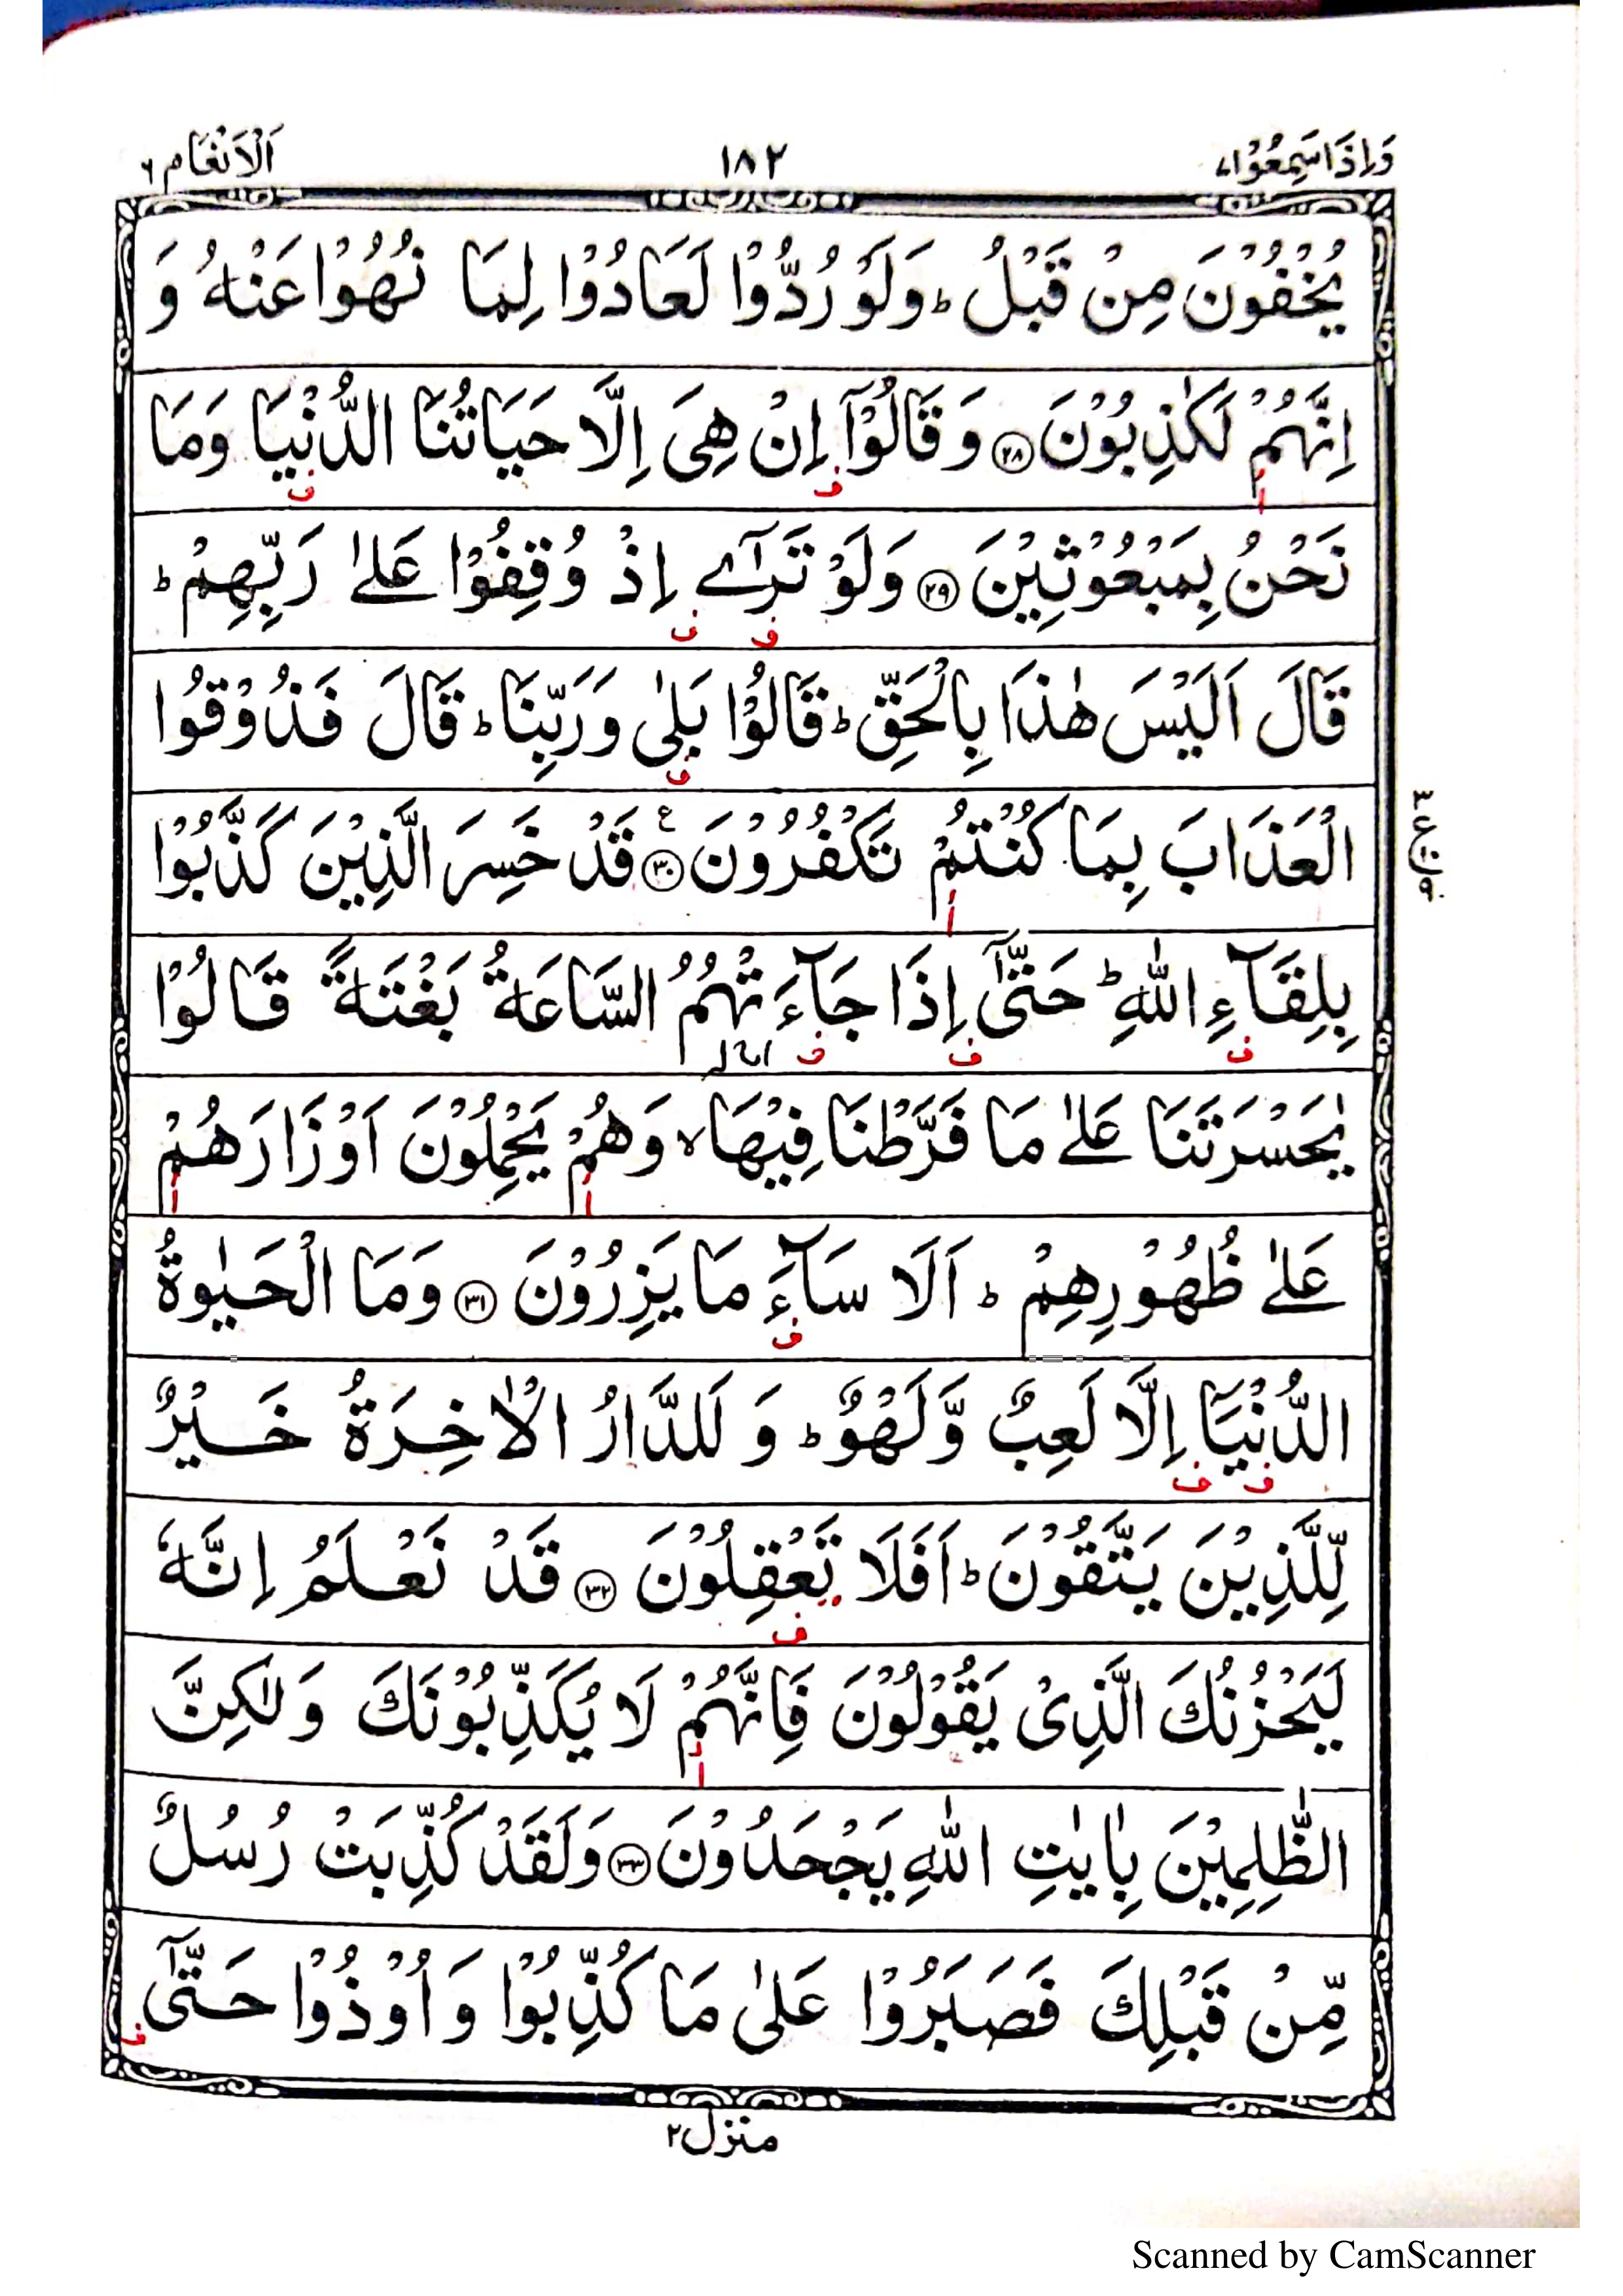 وَاِذَا سَمِعُوْا ٧ ١٨٢ اَلْاَنْعَام ٦
يُخْفُوْنَ مِنْ قَبْلُ ؕ وَلَوْ رُدُّوْا لَعَادُوْا لِمَا نُهُوْا عَنْهُ وَ
اِنَّهُمْ لَكٰذِبُوْنَ ﴿٢٨﴾ وَ قَالُوْۤا اِنْ هِىَ اِلَّا حَيَاتُنَا الدُّنْيَا وَمَا
نَحْنُ بِمَبْعُوْثِيْنَ ﴿٢٩﴾ وَلَوْ تَرٰۤے اِذْ وُقِفُوْا عَلٰے رَبِّهِمْ ؕ
قَالَ اَلَيْسَ هٰذَا بِالْحَقِّ ؕ قَالُوْا بَلٰى وَرَبِّنَا ؕ قَالَ فَذُوْقُوا
الْعَذَابَ بِمَا كُنْتُمْ تَكْفُرُوْنَ ﴿٣٠﴾ ع قَدْ خَسِرَ الَّذِيْنَ كَذَّبُوْا
بِلِقَآءِ اللّٰهِ ؕ حَتّٰۤى اِذَا جَآءَتْهُمُ السَّاعَةُ بَغْتَةً قَالُوْا
يٰحَسْرَتَنَا عَلٰے مَا فَرَّطْنَا فِيْهَا ۙ وَهُمْ يَحْمِلُوْنَ اَوْزَارَهُمْ
عَلٰے ظُهُوْرِهِمْ ؕ اَلَا سَآءَ مَا يَزِرُوْنَ ﴿٣١﴾ وَمَا الْحَيٰوةُ
الدُّنْيَاۤ اِلَّا لَعِبٌ وَّلَهْوٌ ؕ وَ لَلدَّارُ الْاٰخِرَةُ خَيْرٌ
لِّلَّذِيْنَ يَتَّقُوْنَ ؕ اَفَلَا تَعْقِلُوْنَ ﴿٣٢﴾ قَدْ نَعْلَمُ اِنَّهٗ
لَيَحْزُنُكَ الَّذِىْ يَقُوْلُوْنَ فَاِنَّهُمْ لَا يُكَذِّبُوْنَكَ وَلٰكِنَّ
الظّٰلِمِيْنَ بِاٰيٰتِ اللّٰهِ يَجْحَدُوْنَ ﴿٣٣﴾ وَلَقَدْ كُذِّبَتْ رُسُلٌ
مِّنْ قَبْلِكَ فَصَبَرُوْا عَلٰى مَا كُذِّبُوْا وَ اُوْذُوْا حَتّٰۤى
منزل ٢
Scanned by CamScanner